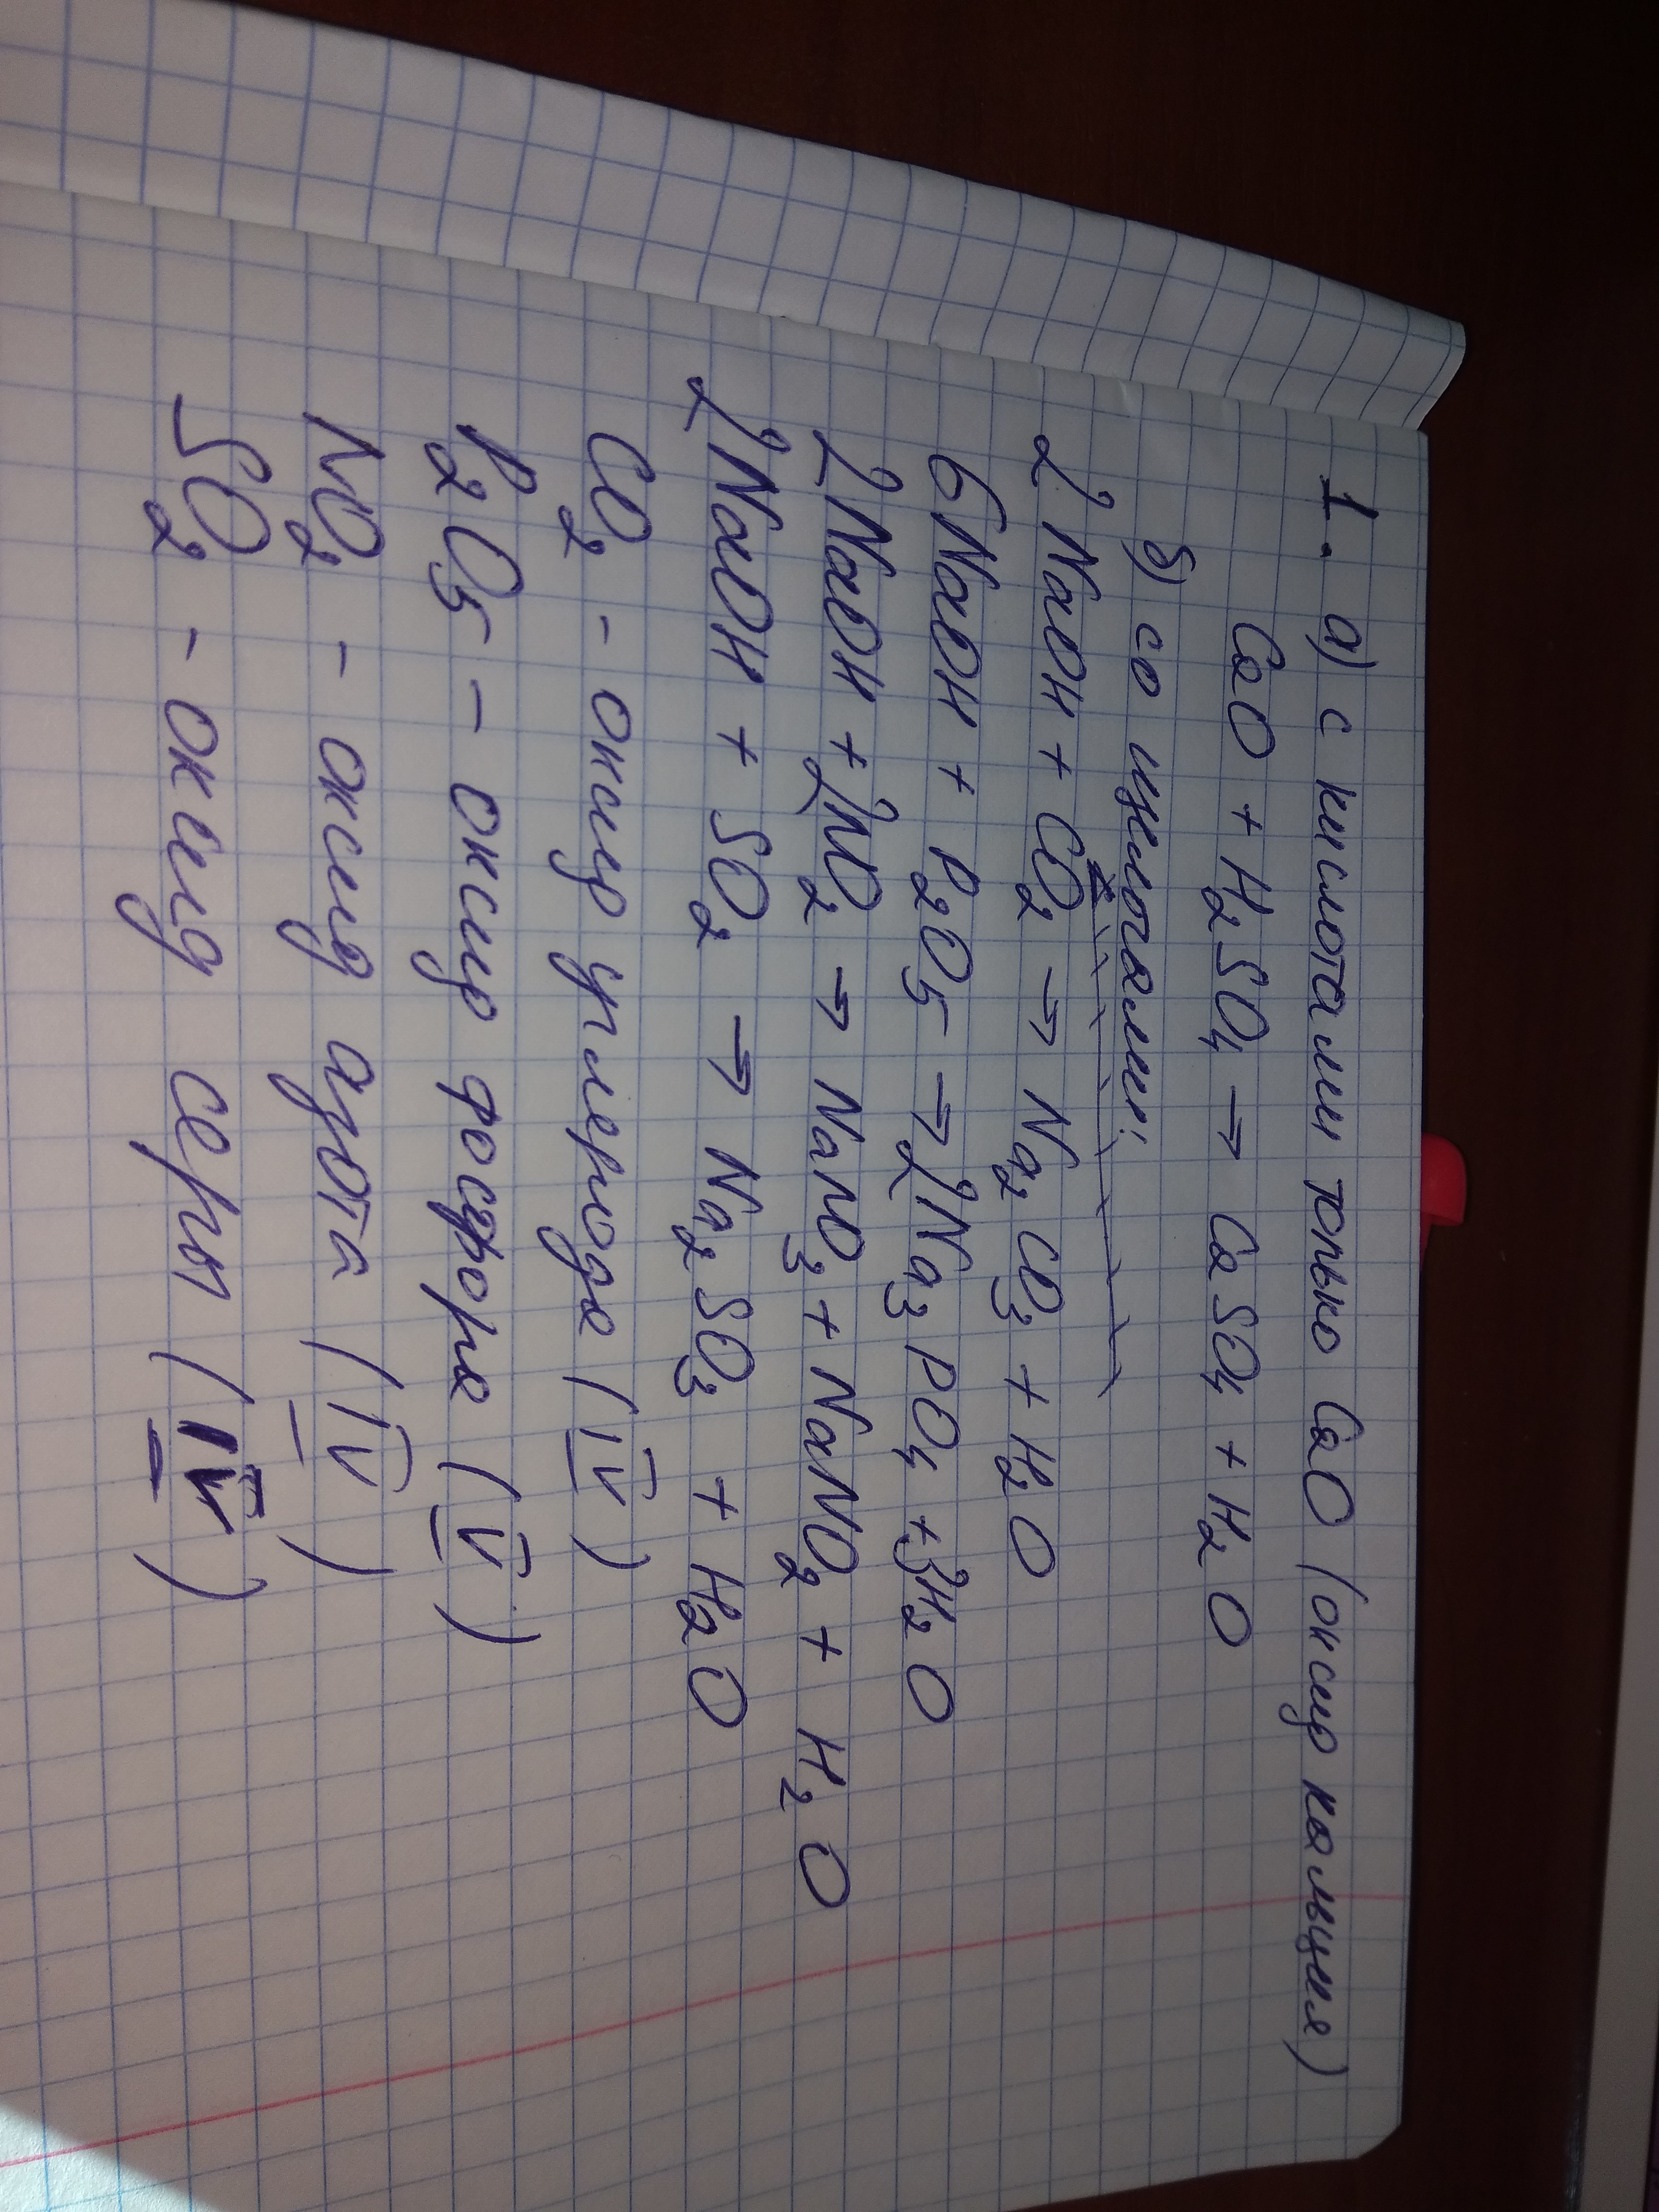 1. а) с кислотами только CaO (оксид кальция)
CaO + H₂SO₄ → CaSO₄ + H₂O
б) со щелочами:
2NaOH + CO₂ → Na₂CO₃ + H₂O
6NaOH + P₂O₅ → 2Na₃PO₄ + 3H₂O
2NaOH + 2NO₂ → NaNO₃ + NaNO₂ + H₂O
2NaOH + SO₂ → Na₂SO₃ + H₂O
CO₂ - оксид углерода (IV)
P₂O₅ - оксид фосфора (V)
NO₂ - оксид азота (IV)
SO₂ - оксид серы (IV)